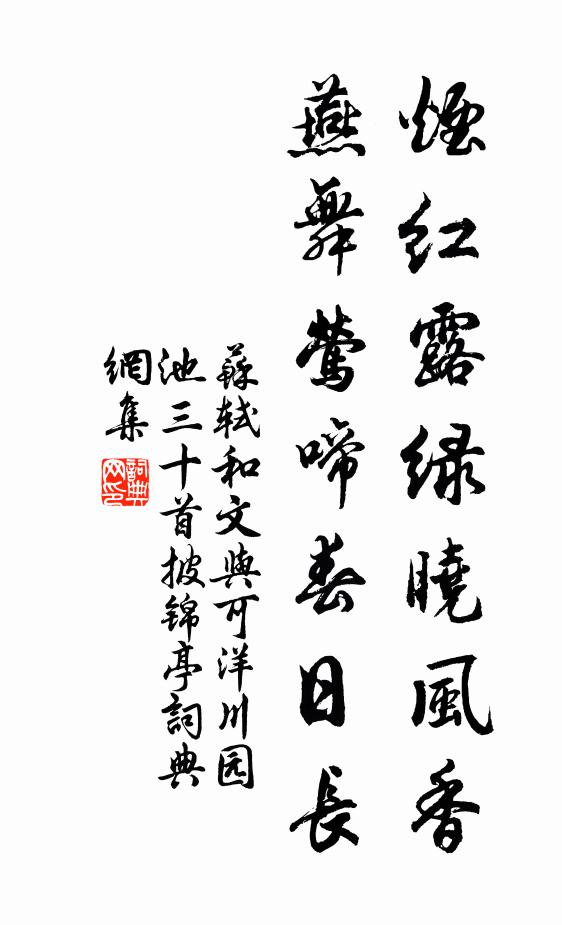 煙红露绿曉風香
燕舞鶯啼春日長
蘇軾和文與可洋川园
池三十首披锦亭詞典
網集
詞典
网印